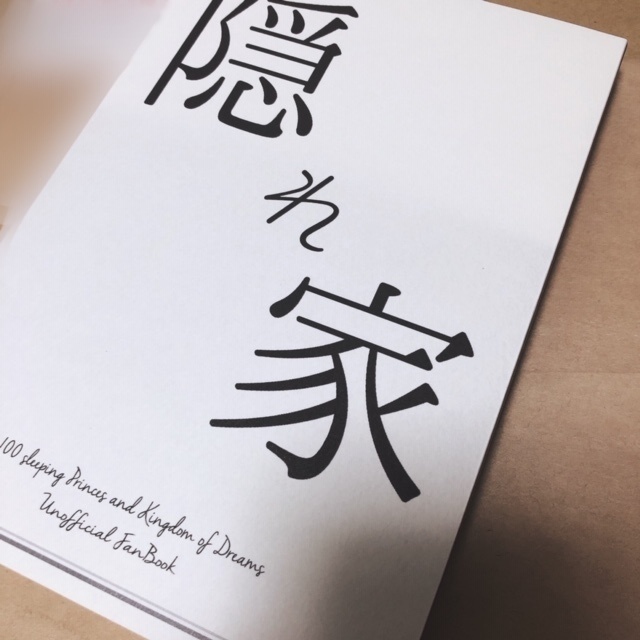 隠れ家
100 sleeping Princes and Kingdom of Dreams
Unofficial FanBook